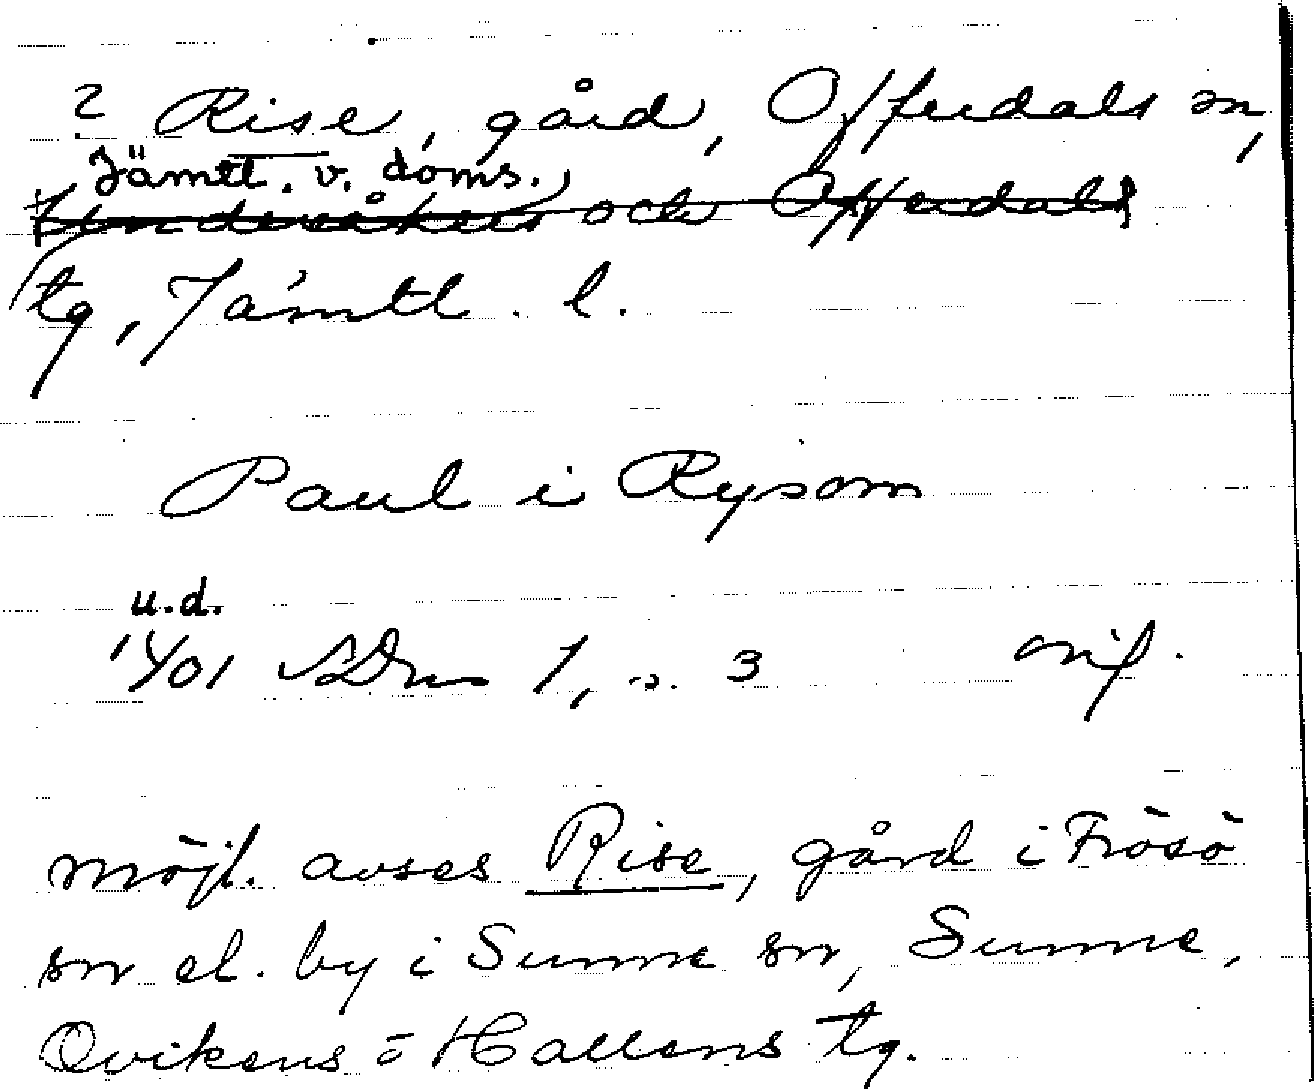 ? Rise, gård, Offerdals sn,
Jämtl. v. doms.,
Undersåkers och Offerdals
tg, Jämtl. l.
Paul i Rysom
u.d.
1401 SDns 1, s. 3 orig.
möjl. avses Rise, gård i Frösö
sn el. by i Sunne sn, Sunne,
Ovikens o Hallens tg.